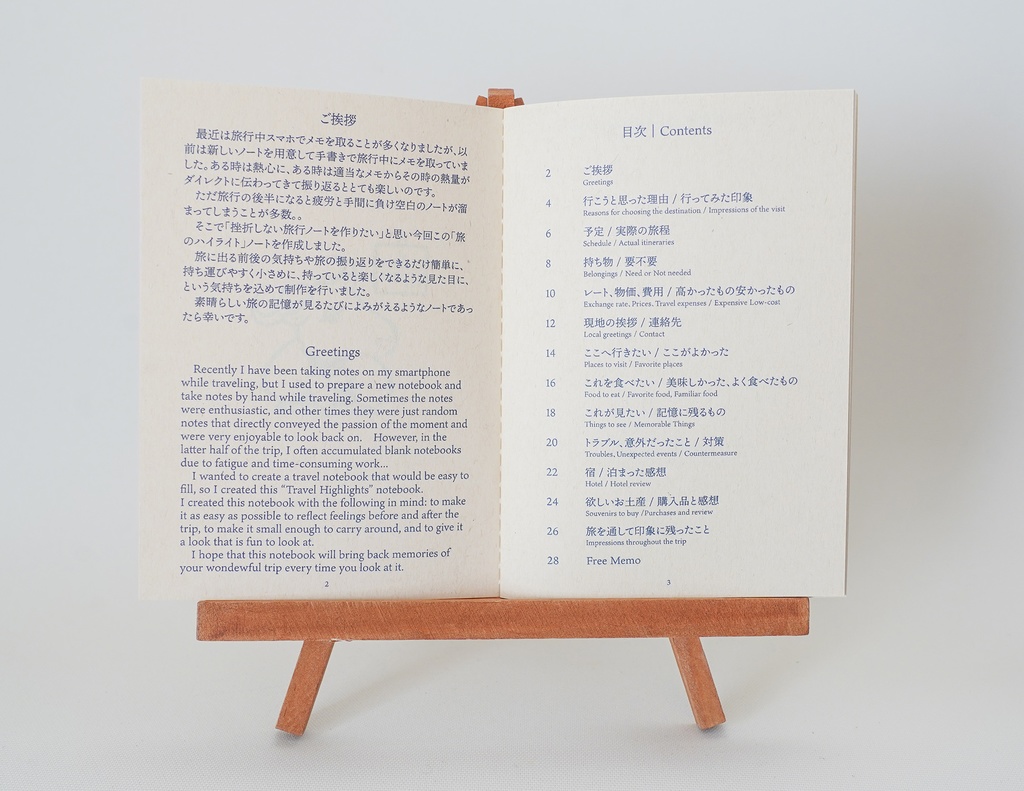 ご挨拶
最近は旅行中スマホでメモを取ることが多くなりましたが、以
前は新しいノートを用意して手書きで旅行中にメモを取っていま
した。ある時は熱心に、ある時は適当なメモからその時の熱量が
ダイレクトに伝わってきて振り返るととても楽しいのです。
ただ旅行の後半になると疲労と手間に負け空白のノートが溜
まってしまうことが多数。。
そこで「挫折しない旅行ノートを作りたい」と思い今回この「旅
のハイライト」ノートを作成しました。
旅に出る前後の気持ちや旅の振り返りをできるだけ簡単に、
持ち運びやすく小さめに、持っていると楽しくなるような見た目に、
という気持ちを込めて制作を行いました。
素晴らしい旅の記憶が見るたびによみがえるようなノートであっ
たら幸いです。
Greetings
Recently I have been taking notes on my smartphone
while traveling, but I used to prepare a new notebook and
take notes by hand while traveling. Sometimes the notes
were enthusiastic, and other times they were just random
notes that directly conveyed the passion of the moment and
were very enjoyable to look back on. However, in the
latter half of the trip, I often accumulated blank notebooks
due to fatigue and time-consuming work...
I wanted to create a travel notebook that would be easy to
fill, so I created this “Travel Highlights” notebook.
I created this notebook with the following in mind: to make
it as easy as possible to reflect feelings before and after the
trip, to make it small enough to carry around, and to give it
a look that is fun to look at.
I hope that this notebook will bring back memories of
your wondewful trip every time you look at it.
2
目次 | Contents
2 ご挨拶
Greetings
4 行こうと思った理由 / 行ってみた印象
Reasons for choosing the destination / Impressions of the visit
6 予定 / 実際の旅程
Schedule / Actual itineraries
8 持ち物 / 要不要
Belongings / Need or Not needed
10 レート、物価、費用 / 高かったもの安かったもの
Exchange rate, Prices, Travel expenses / Expensive Low-cost
12 現地の挨拶 / 連絡先
Local greetings / Contact
14 ここへ行きたい / ここがよかった
Places to visit / Favorite places
16 これを食べたい / 美味しかった、よく食べたもの
Food to eat / Favorite food, Familiar food
18 これが見たい / 記憶に残るもの
Things to see / Memorable Things
20 トラブル、意外だったこと / 対策
Troubles, Unexpected events / Countermeasure
22 宿 / 泊まった感想
Hotel / Hotel review
24 欲しいお土産 / 購入品と感想
Souvenirs to buy /Purchases and review
26 旅を通して印象に残ったこと
Impressions throughout the trip
28 Free Memo
3